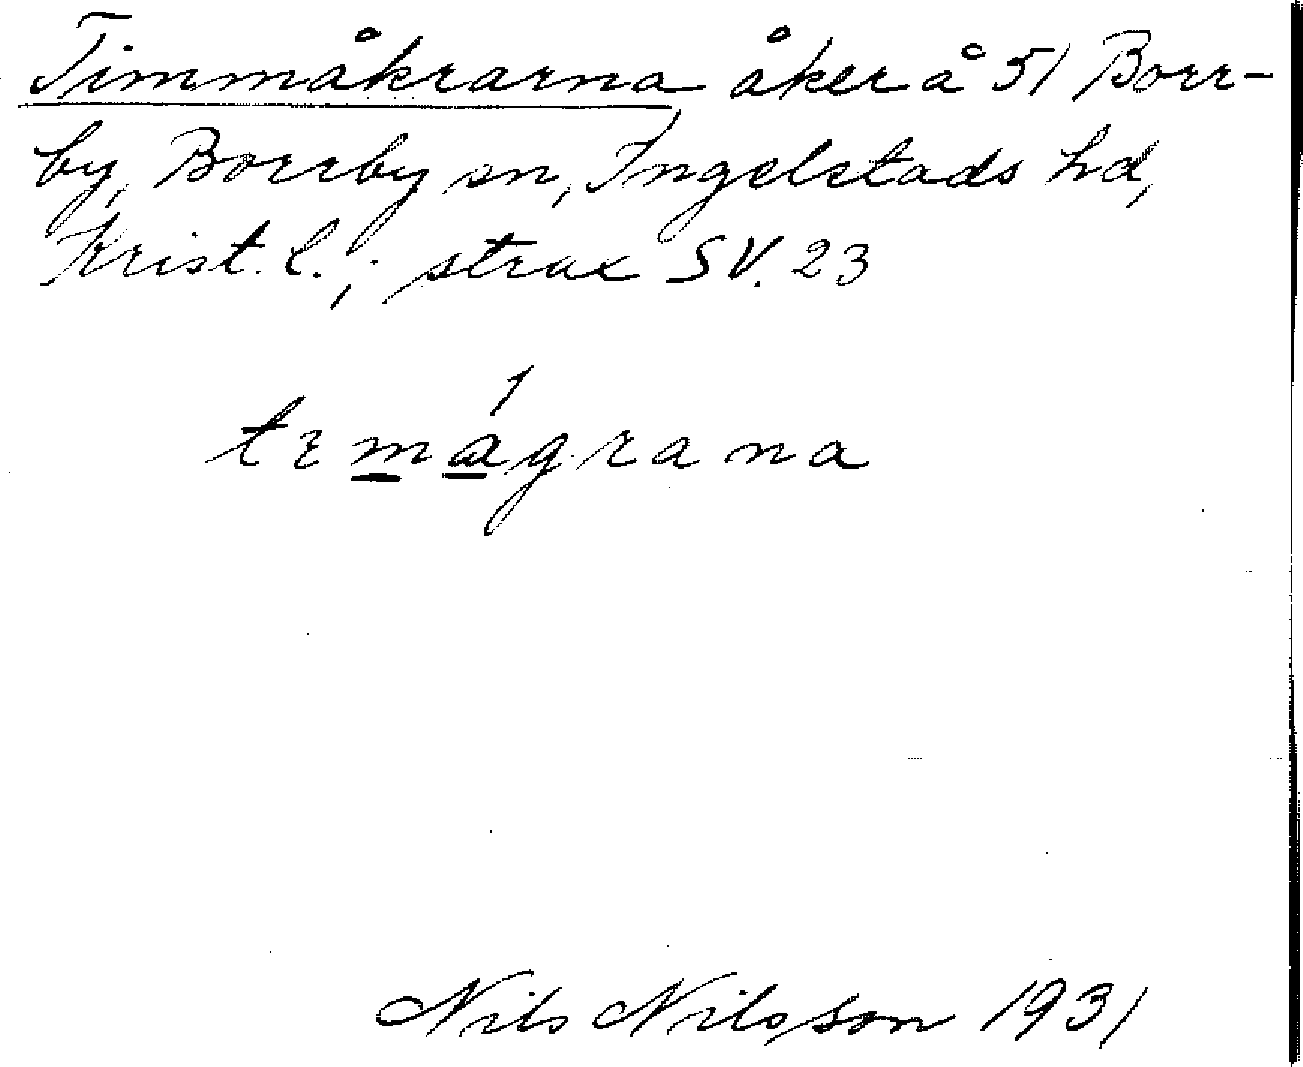 Timmåkrarna åker å 51 Borr-
by, Borrby sn, Ingelstads hd,
Krist. l.; strax SV. 23
tɛmágrana
Nils Nilsson 1931